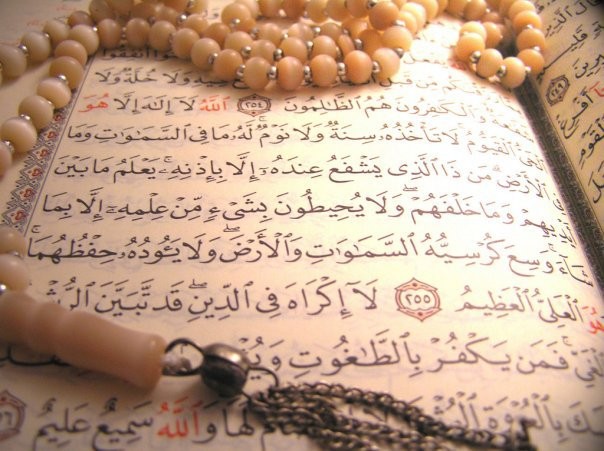 أَنفِقُوا۟
وَلَا خُلَّةٌ وَلَا
وَٱلْكَٰفِرُونَ هُمُ ٱلظَّٰلِمُونَ ٢٥٤ ٱللَّهُ لَآ إِلَٰهَ إِلَّا هُوَ
ٱلْحَىُّ ٱلْقَيُّومُ لَا تَأْخُذُهُۥ سِنَةٌ وَلَا نَوْمٌ لَّهُۥ مَا فِى ٱلسَّمَٰوَٰتِ وَمَا
فِى ٱلْأَرْضِ مَن ذَا ٱلَّذِى يَشْفَعُ عِندَهُۥٓ إِلَّا بِإِذْنِهِۦ يَعْلَمُ مَا بَيْنَ
أَيْدِيهِمْ وَمَا خَلْفَهُمْ وَلَا يُحِيطُونَ بِشَىْءٍ مِّنْ عِلْمِهِۦٓ إِلَّا بِمَا
شَآءَ وَسِعَ كُرْسِيُّهُ ٱلسَّمَٰوَٰتِ وَٱلْأَرْضَ وَلَا يَـُٔودُهُۥ حِفْظُهُمَا
هُوَ ٱلْعَلِىُّ ٱلْعَظِيمُ ٢٥٥ لَآ إِكْرَاهَ فِى ٱلدِّينِ قَد تَّبَيَّنَ ٱلرُّشْدُ
ٱلْغَىِّ فَمَن يَكْفُرْ بِٱلطَّٰغُوتِ
بِٱلْعُرْوَةِ لَهَا وَٱللَّهُ سَمِيعٌ عَلِيمٌ